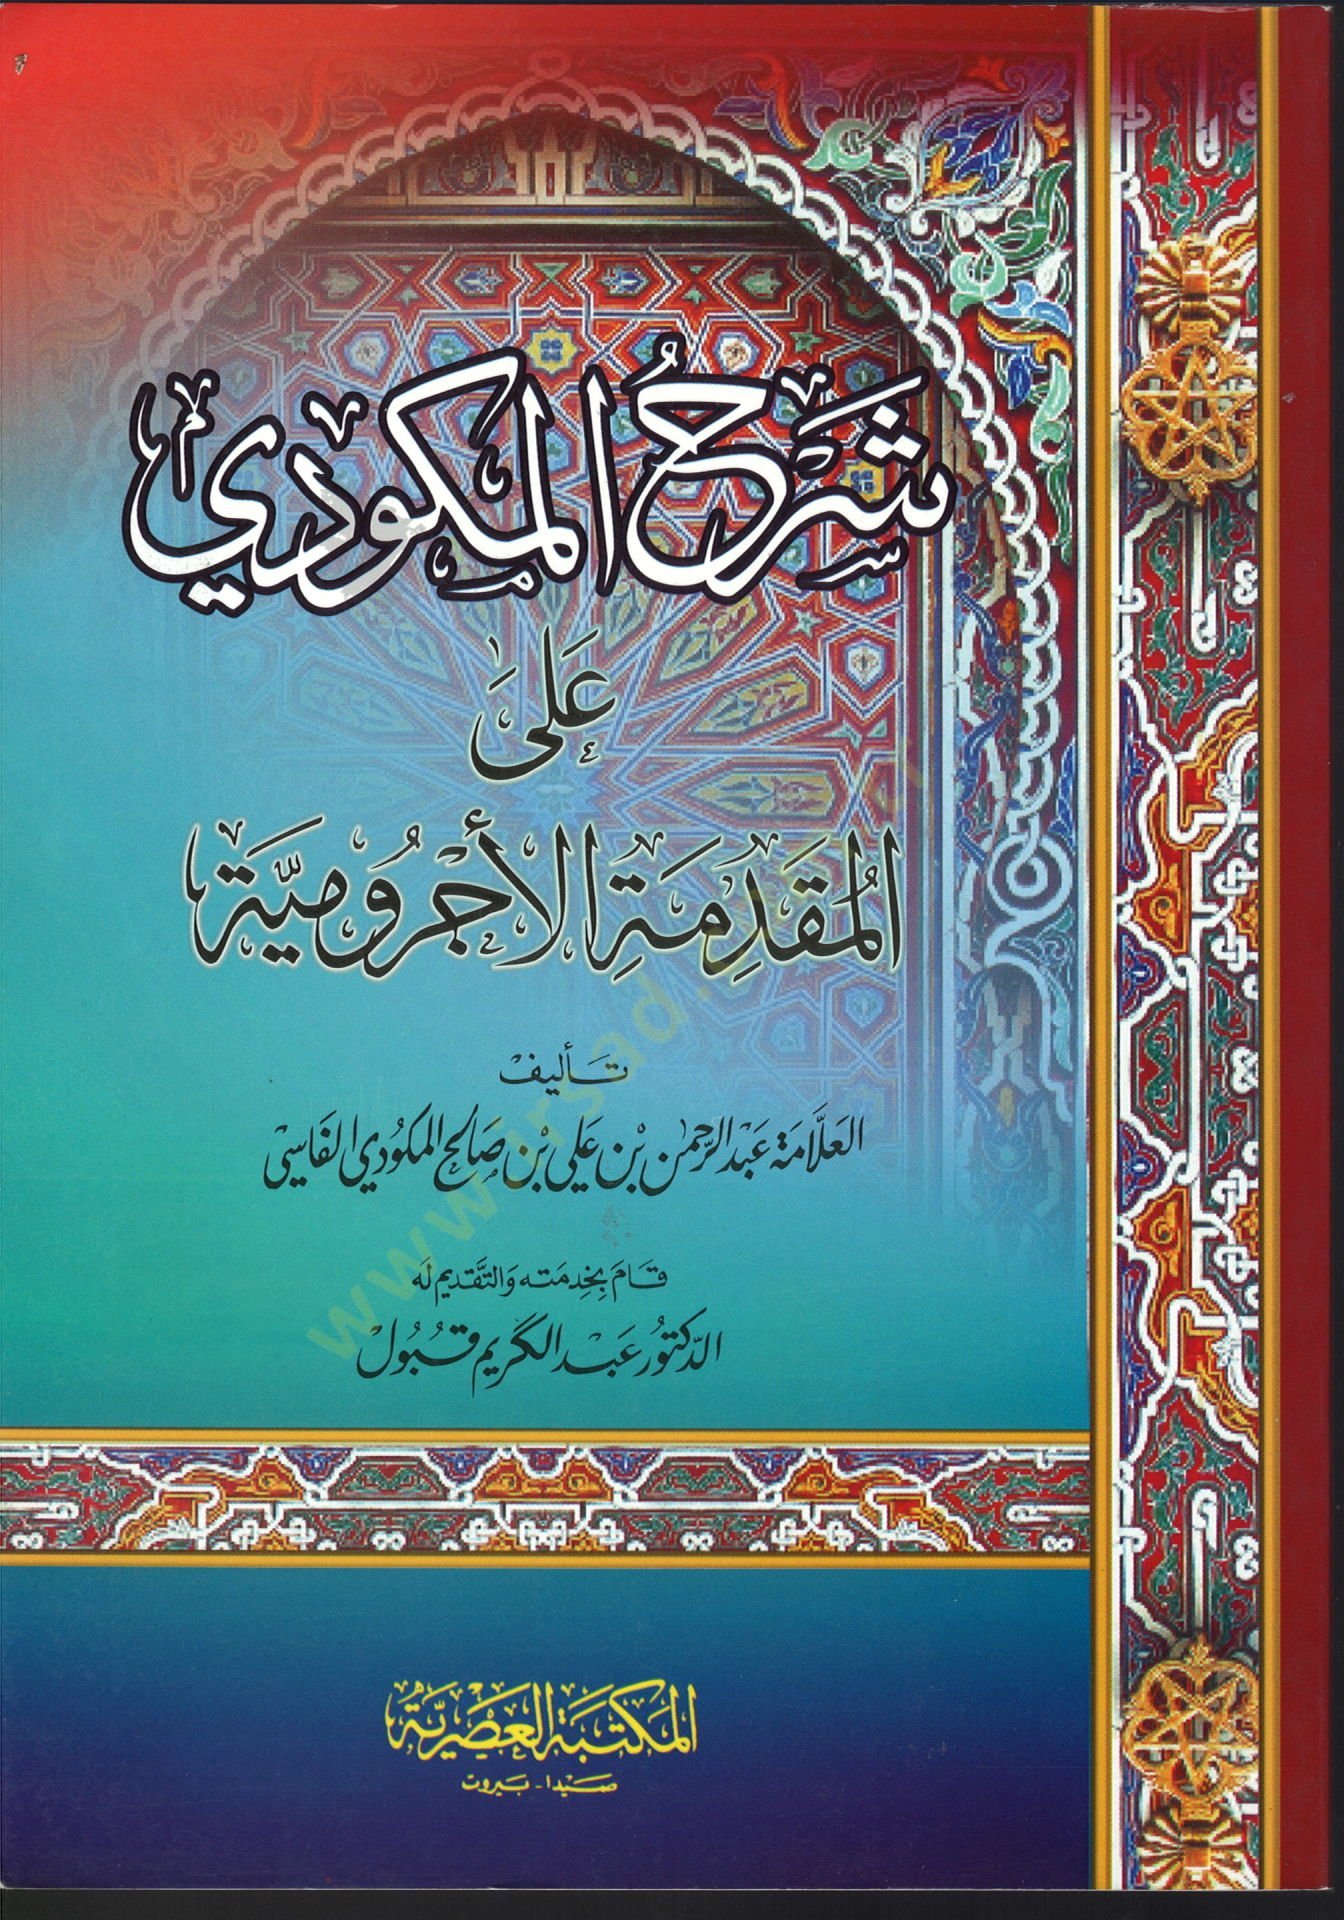 شَرْحُ المكودي
عَلَى
المُقَدِمَةِ الأجْرُومِيَّة
تأليف
العَلَّامَة عَبْد الرَّحمٰن بْن عَلي بْن صَالح المكُودي الفَاسيّ
قَامَ بِخِدمَته وَالتَّقديم لَه
الدّكتُور عَبْد الكَريم قَبُولْ
المَكتَبَة العَصْريَّة
صَيْدَا - بَيروت